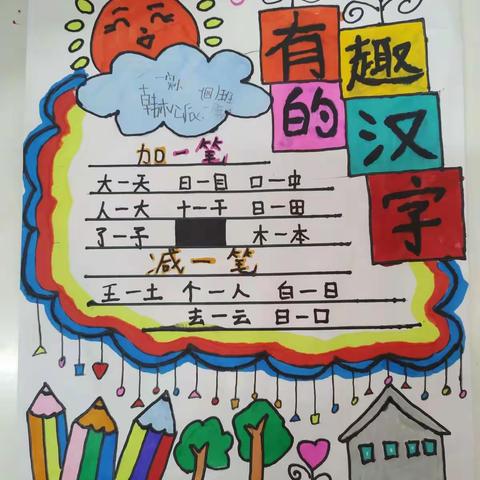 有趣
的汉
字
一 班
加一笔
大一天 日一目 口一中
人一大 十一干 日一田
了一子 木一本
减一笔
王一土 个一人 白一日
去一云 日一口